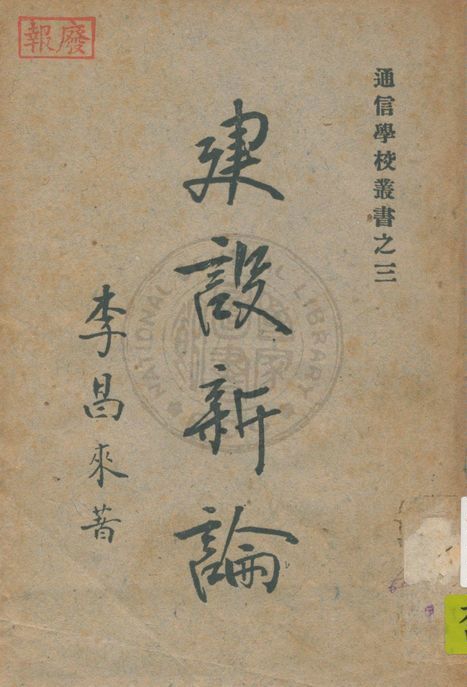 通信學校叢書之三
建設新論
李昌來著
報廢
NATIONAL CENTRAL LIBRARY